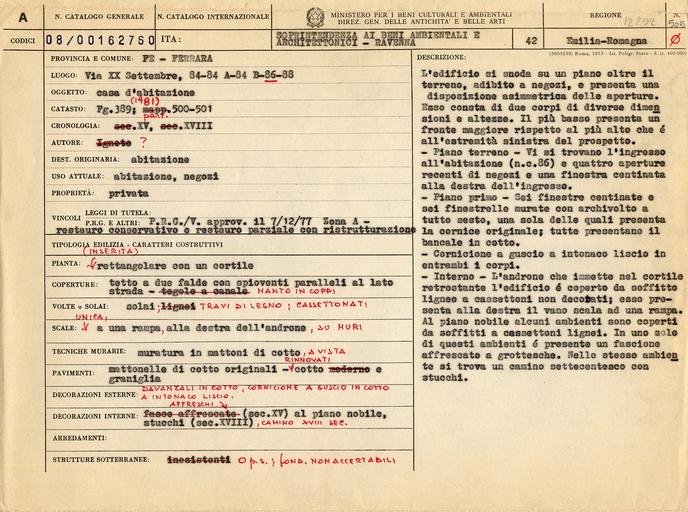 A
N. CATALOGO GENERALE
N. CATALOGO INTERNAZIONALE
MINISTERO PER I BENI CULTURALI E AMBIENTALI
DIREZ. GEN. DELLE ANTICHITA' E BELLE ARTI
REGIONE
N.
505
CODICI
08/00162760
ITA:
SOPRINTENDENZA AI BENI AMBIENTALI E
ARCHITETTONICI - RAVENNA
42
Emilia-Romagna
Ø
PROVINCIA E COMUNE: FE - FERRARA
LUOGO: Via XX Settembre, 84-84 A-84 B-86-88
OGGETTO: casa d'abitazione
(1981)
CATASTO: Fg.389; mapp.500-501
part.
CRONOLOGIA: sec.XV, sec.XVIII
AUTORE: Ignoto ?
DEST. ORIGINARIA: abitazione
USO ATTUALE: abitazione, negozi
PROPRIETÀ: privata
VINCOLI
LEGGI DI TUTELA:
P.R.G. E ALTRI: P.R.G./V. approv. il 7/12/77 Zona A -
restauro conservativo e restauro parziale con ristrutturazione
TIPOLOGIA EDILIZIA - CARATTERI COSTRUTTIVI
(INSERITA)
PIANTA: rettangolare con un cortile
COPERTURE: tetto a due falde con spioventi paralleli al lato
strada - tegole a canale MANTO IN COPPI
VOLTE o SOLAI: solai lignei TRAVI DI LEGNO; CASSETTONATI
UNICA,
SCALE: a una rampa, alla destra dell'androne, SU MURI
TECNICHE MURARIE: muratura in mattoni di cotto, A VISTA
RINNOVATI
PAVIMENTI: mattonelle di cotto originali - cotto moderno e
graniglia
DECORAZIONI ESTERNE: DAVANZALI IN COTTO, CORNICIONE A GUSCIO IN COTTO
A INTONACO LISCIO.
AFFRESCHI
DECORAZIONI INTERNE: fasce affrescate (sec.XV) al piano nobile,
stucchi (sec.XVIII), CAMINO XVIII SEC.
ARREDAMENTI:
STRUTTURE SOTTERRANEE: inesistenti O p.s.; FOND. NON ACCERTABILI
(5605239) Roma, 1975 - Ist. Poligr. Stato - S. (c. 400.000)
DESCRIZIONE:
L'edificio si snoda su un piano oltre il
terreno, adibito a negozi, e presenta una
disposizione asimmetrica delle aperture.
Esso consta di due corpi di diverse dimen
sioni e altezze. Il più basso presenta un
fronte maggiore rispetto al più alto che é
all'estremità sinistra del prospetto.
- Piano terreno - Vi si trovano l'ingresso
all'abitazione (n.c.86) e quattro aperture
recenti di negozi e una finestra centinata
alla destra dell'ingresso.
- Piano primo - Sei finestre centinate e
sei finestrelle murate con archivolto a
tutto sesto, una sola delle quali presenta
la cornice originale; tutte presentano il
bancale in cotto.
- Cornicione a guscio a intonaco liscio in
entrambi i corpi.
- Interno - L'androne che immette nel cortile
retrostante l'edificio é coperto da soffitto
ligneo a cassettoni non decorati; esso pre-
senta alla destra il vano scala ad una rampa.
Al piano nobile alcuni ambienti sono coperti
da soffitti a cassettoni lignei. In uno solo
di questi ambienti é presente un fascione
affrescato a grottesche. Nello stesso ambien
te si trova un camino settecentesco con
stucchi.